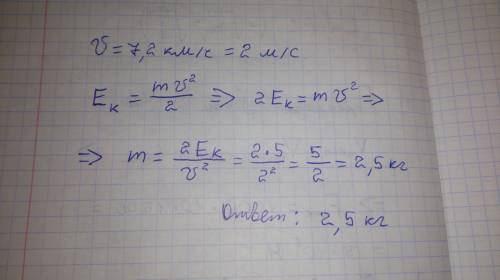 υ = 7,2 км/с = 2 м/с
Eₖ = mυ²/2 => 2Eₖ = mυ² =>
=> m = 2Eₖ/υ² = 2·5/2² = 5/2 = 2,5 кг
Ответ: 2,5 кг